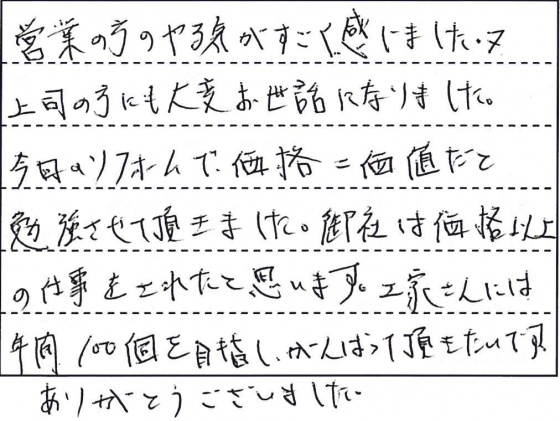 営業の方のやる気がすごく感じました。又
上司の方にも大変お世話になりました。
今回のリフォームで、価格=価値だと
勉強させて頂きました。御社は価格以上
の仕事をされたと思います。工家さんには
年間100個を目指し、がんばって頂きたいです。
ありがとうございました。